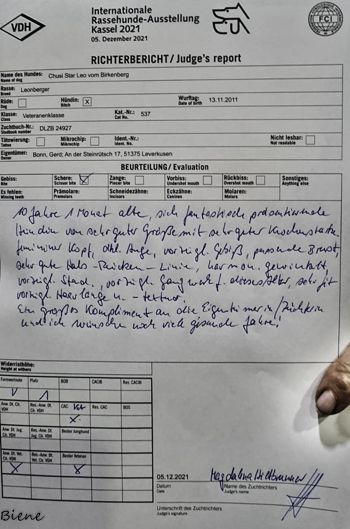 VDH
Internationale
Rassehunde-Ausstellung
Kassel 2021
05. Dezember 2021
FCI
RICHTERBERICHT / Judge's report
Name des Hundes: Chusi Star Leo vom Birkenberg
Name of dog
Rasse: Leonberger
Breed
Rüde: Hündin: X Wurftag: 13.11.2011
Dog Bitch Date of birth
Klasse: Veteranenklasse Kat.-Nr.: 537
Class Cat No.
Zuchtbuch-Nr.: DLZB 24927
Stud book-No.
Tätowierung: Mikrochip: Ident.-Nr. Nicht lesbar:
Tattoo Microchip Ident. No. Not readable
Eigentümer: Bonn, Gerd; An der Steinrütsch 17, 51375 Leverkusen
Owner
BEURTEILUNG / Evaluation
Gebiss: Schere: Zange: Vorbiss: Rückbiss: Sonstiges:
Bite Scissor bite Pincer bite Undershot mouth Overshot mouth Anything else
Es fehlen: Prämolare: Schneidezähne: Eckzähne: Molaren:
Missing teeth Premolars Incisors Canines Molars
10 Jahre 1 Monat alte, sich fantastisch präsentierende
Hündin von sehr guter Größe mit sehr guter Knochenstärke,
femininer Kopf, dkl. Auge, vorzügl. Gebiß, passende Brust,
sehr gute Hals-Rücken-Linie, harmon. gewinkelt,
vorzügl. Stand, vorzügl. Gangwerk f. sehr fit
vorzügl. Haarlänge u. -textur.
Ein großes Kompliment an die Eigentümerin/Züchterin
und ich wünsche noch viel gesunde Jahre!
Widerristhöhe:
Height at withers
Formwertnote Platz BOB CACIB Res. CACIB
V 1
Anw. Dt. Ch. VDH Res.-Anw. Dt. Ch. VDH CAC Vet. Res. CAC BOS
X
Anw. Dt. Jug. Ch. VDH Res.-Anw. Dt. Jug. Ch. VDH Bester Junghund
Anw. Dt. Vet. Ch. VDH Res.-Anw. Dt. Vet. Ch. VDH Bester Veteran
X X
05.12.2021
Datum Name des Zuchtrichters
Date Judge's name
Unterschrift des Zuchtrichters
Judge's signature
Biene